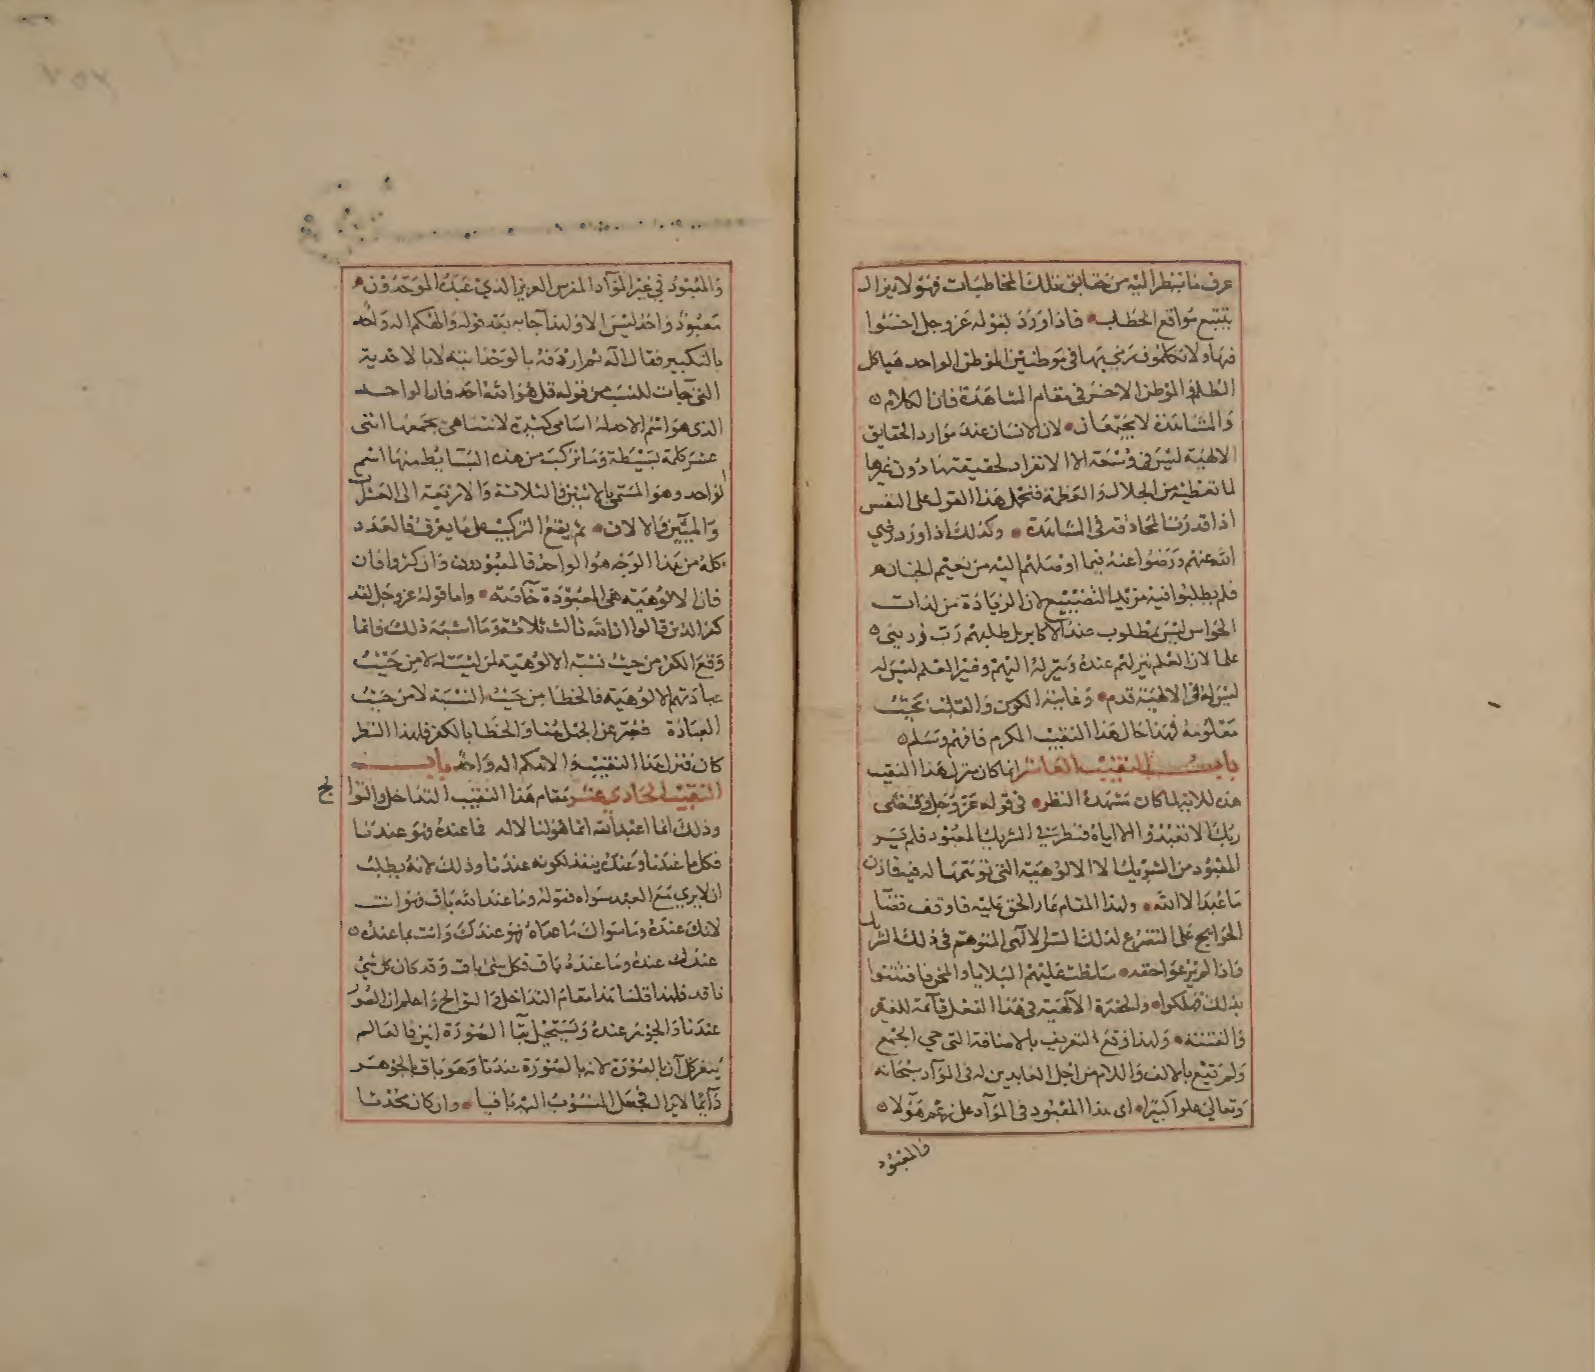 عرف ما ينظر اليه من حقايق تلك المخاطبات فهو لا يزال
يتتبع مواقع الخطاب فاذا ورد لقوله عز وجل اخسئوا
فيها ولا تكلمون في موطنين الموطن الواحد هياكل
الظلم والموطن الاخر في مقام المشاهدة فان الكلام
والمشاهدة لا يجتمعان لان الانسان عند موارد الحقايق
الالهية ليس في وسعه الا الانفراد لحقيقة ما دون غيرها
لما تعطيه من الجلال والعظمة فتحمل هذا القول على النفس
اذا قدرنا المحادثة في المشاهدة وكذلك اذا ورد رضي
الله عنهم ورضوا عنه فيما اوصلهم اليه من نعيم الجنان
فلم يطلبوا فيه مزيد لان الزيادة من لذات
الحواس ليس بمطلوب عند الاكابر بل طلبهم رب زدني
علما لان العلم نيرلهم عنده وميزله اليهم وغير العلم ليس له
ليس له في الالهية قدم وغايته الكون والقلب تحت
معلومه فهذا حال هذا النقيب المكرم فافهم وسلم
باب النقيب العاشر انما كان منزل هذا النقيب
هذه للاية لما كان مشهده النظر في قوله عز وجل وقضى
ربك الا تعبدوا الا اياه فنظر في الشريك المعبود فلم ير
المعبود من الشريك الا الالوهية التي توهمها له فيه فاذن
ما عبد الا الله ولهذا المقام غار الحق عليه فاوقف قضا
الحوايج على التضرع لذلك السر الالهي المتوهم في ذلك الشريك
فاذا لم يرعوا حقه سلطت عليهم البلايا والمحن فافتتنوا
بذلك فهلكوا والحضرة الالهية في هذا الفعل قائمة للغير
والفتنة ولهذا وقع التعريف بالاضافة التي هي الجمع
ولم تقع بالالف واللام من اجل العابدين له في المواد سبحانه
وتعالى علوا كبيرا اي هذا المعبود في المواد على زعم هولا
فالمعبود
والمعبود في غير المواد المقدس العزيز الذي عبده الموحدون
معبود واحد ليس الا ولهذا جا به بعد قوله والهكم اله واحد
بالتكبير فقال اله ثم اردفه بالوحدانية لا بالاحدية
التي جات للنسب من قوله قل هو الله احد فان الواحد
الذي هو اسم الاصل له اسامي كثيرة لا تتناهى يجمعها اثنتى
عشر كلمة بسيطة وما تركب من هذه البسايط منها اسم
الواحد وهو المسمى بالاثنين والثلاثة والاربعة الى العشر
والميين والالاف ثم يقع التركيب على ما يعرف فالعدد
كله من هذا الوجه هو الواحد فالمعبودون وان كثروا فان
فان الالوهية هي المعبودة خاصة واما قوله عز وجل لقد
كفر الذين قالوا ان الله ثالث ثلاثة وما اشبه ذلك فانما
وقع الكفر من حيث نسبة الالوهية لمن ليست له لا من حيث
عبادتهم الالوهية فالخطا من حيث النسبة لا من حيث
العبادة فعبر عن الجهل هنا والخطا بالكفر فلهذا النظر
كان منزل هذا النقيب والهكم اله واحد باب
النقيب الحادي عشر مقام هذا النقيب التداخل والتوا
لج
وذلك انما اعبد الله انما هو لنا لا له فما عنده فهو عندنا
فكل ما عندنا وعنده ينفد لكونه عندنا وذلك لانه يطلب
ان لا يرى مع العبد سواه فقوله وما عند الله باق فهو انت
لانك عنده وما سواك ما عداه فهو عندك وانت بما عنده
عندك عنده وما عنده باق فكل شي باق وقد كان كل شي
نافد فلهذا قلنا هذا مقام التداخل في التوالج واعلم ان الصور
عندنا والجوهر عنده ويستحيل بقا الصورة اينن فالعالم
ينفد كل آن بالصورة لانه بالصورة عندنا وهو باق بالجوهر
دايما لا يزال فجعل المنسوب اليه باقيا وان كان محدثا